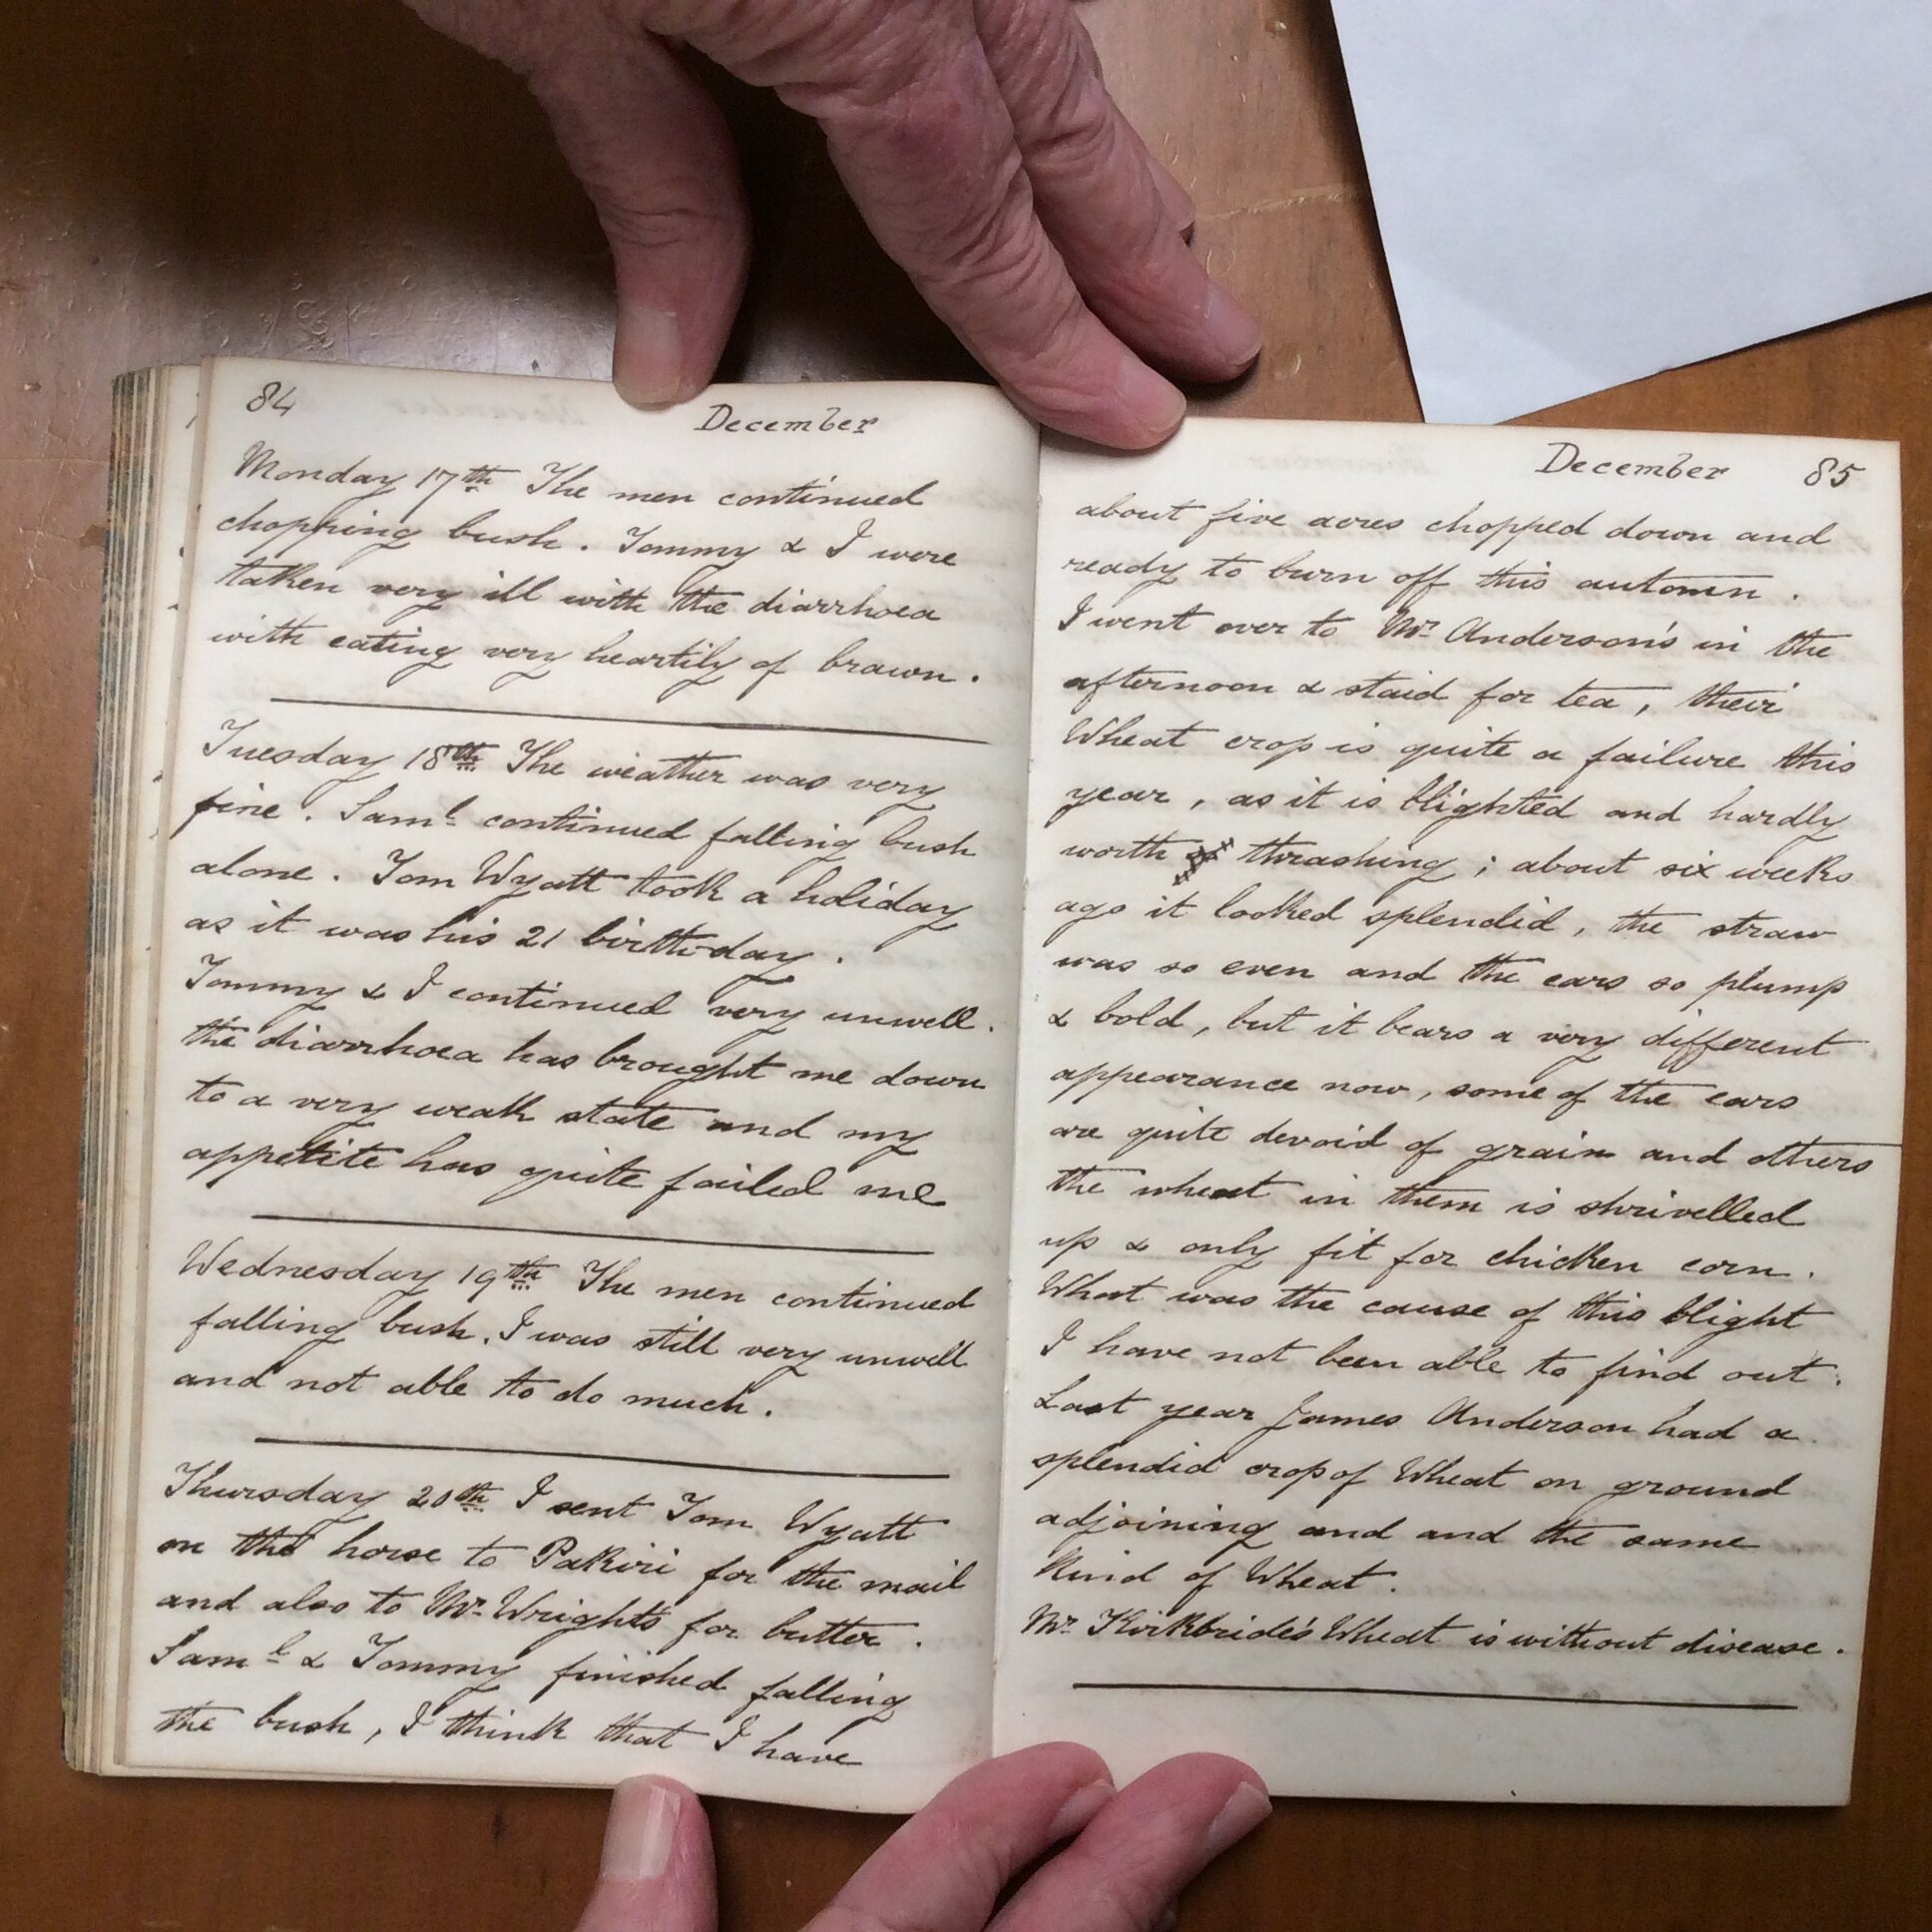 84
December
Monday 17th The men continued
chopping bush. Tommy & I were
taken very ill with the diarrhoea
with eating very heartily of brawn.
Tuesday 18th The weather was very
fine. Saml continued falling bush
alone. Tom Wyatt took a holiday
as it was his 21 birth-day.
Tommy & I continued very unwell.
the diarrhoea has brought me down
to a very weak state and my
appetite has quite failed me
Wednesday 19th The men continued
falling bush. I was still very unwell
and not able to do much.
Thursday 20th I sent Tom Wyatt
on the horse to Pakiri for the mail
and also to Mr Wright's for butter.
Saml & Tommy finished falling
the bush, I think that I have
December 85
about five acres chopped down and
ready to burn off this automn.
I went over to Mr Anderson's in the
afternoon & staid for tea, their
Wheat crop is quite a failure this
year, as it is blighted and hardly
worth thrashing; about six weeks
ago it looked splendid, the straw
was so even and the ears so plump
& bold, but it bears a very different
appearance now, some of the ears
are quite devoid of grain and others
the wheat in them is shrivelled
up & only fit for chicken corn.
What was the cause of this blight
I have not been able to find out.
Last year James Anderson had a
splendid crop of Wheat on ground
adjoining and and the same
kind of Wheat.
Mr Kirkbride's Wheat is without disease.